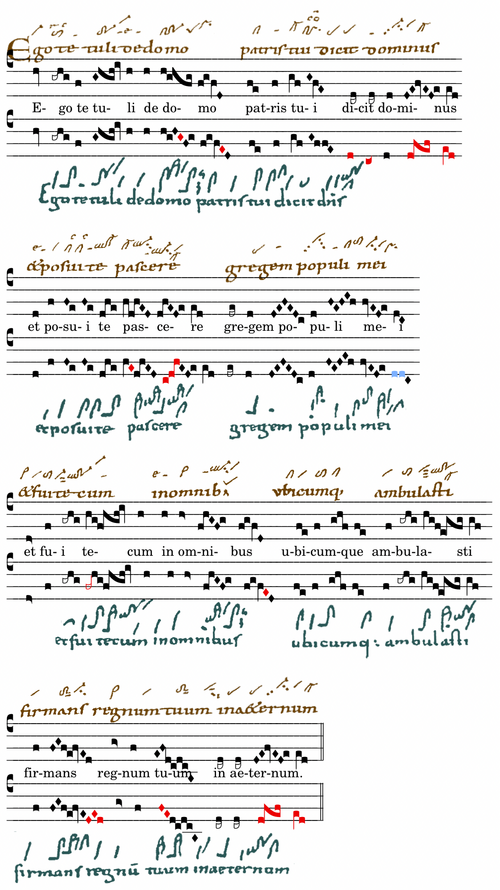 Ego te tuli de domo patris tui dicit dominus
E- go te tu- li de do- mo pat-ris tu- i di-cit do-mi- nus
Ego te tuli de domo patris tui dicit dñs
&posui te pascere gregem populi mei
et po-su- i te pas- ce- re gre-gem po- pu- li me- i
et posui te pascere gregem populi mei
&fui te cum in omnib; ubicumq; ambulasti
et fu- i te- cum in om-ni- bus u-bi-cum-que am-bu-la- sti
et fui tecum in omnibus ubicumq: ambulasti
firmans regnum tuum in a&ernum
fir-mans reg-num tu-um in ae-ter-num.
firmans regnū tuum in aeternum